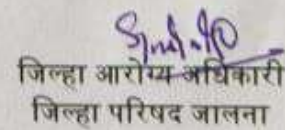 जिल्हा आरोग्य अधिकारी
जिल्हा परिषद जालना